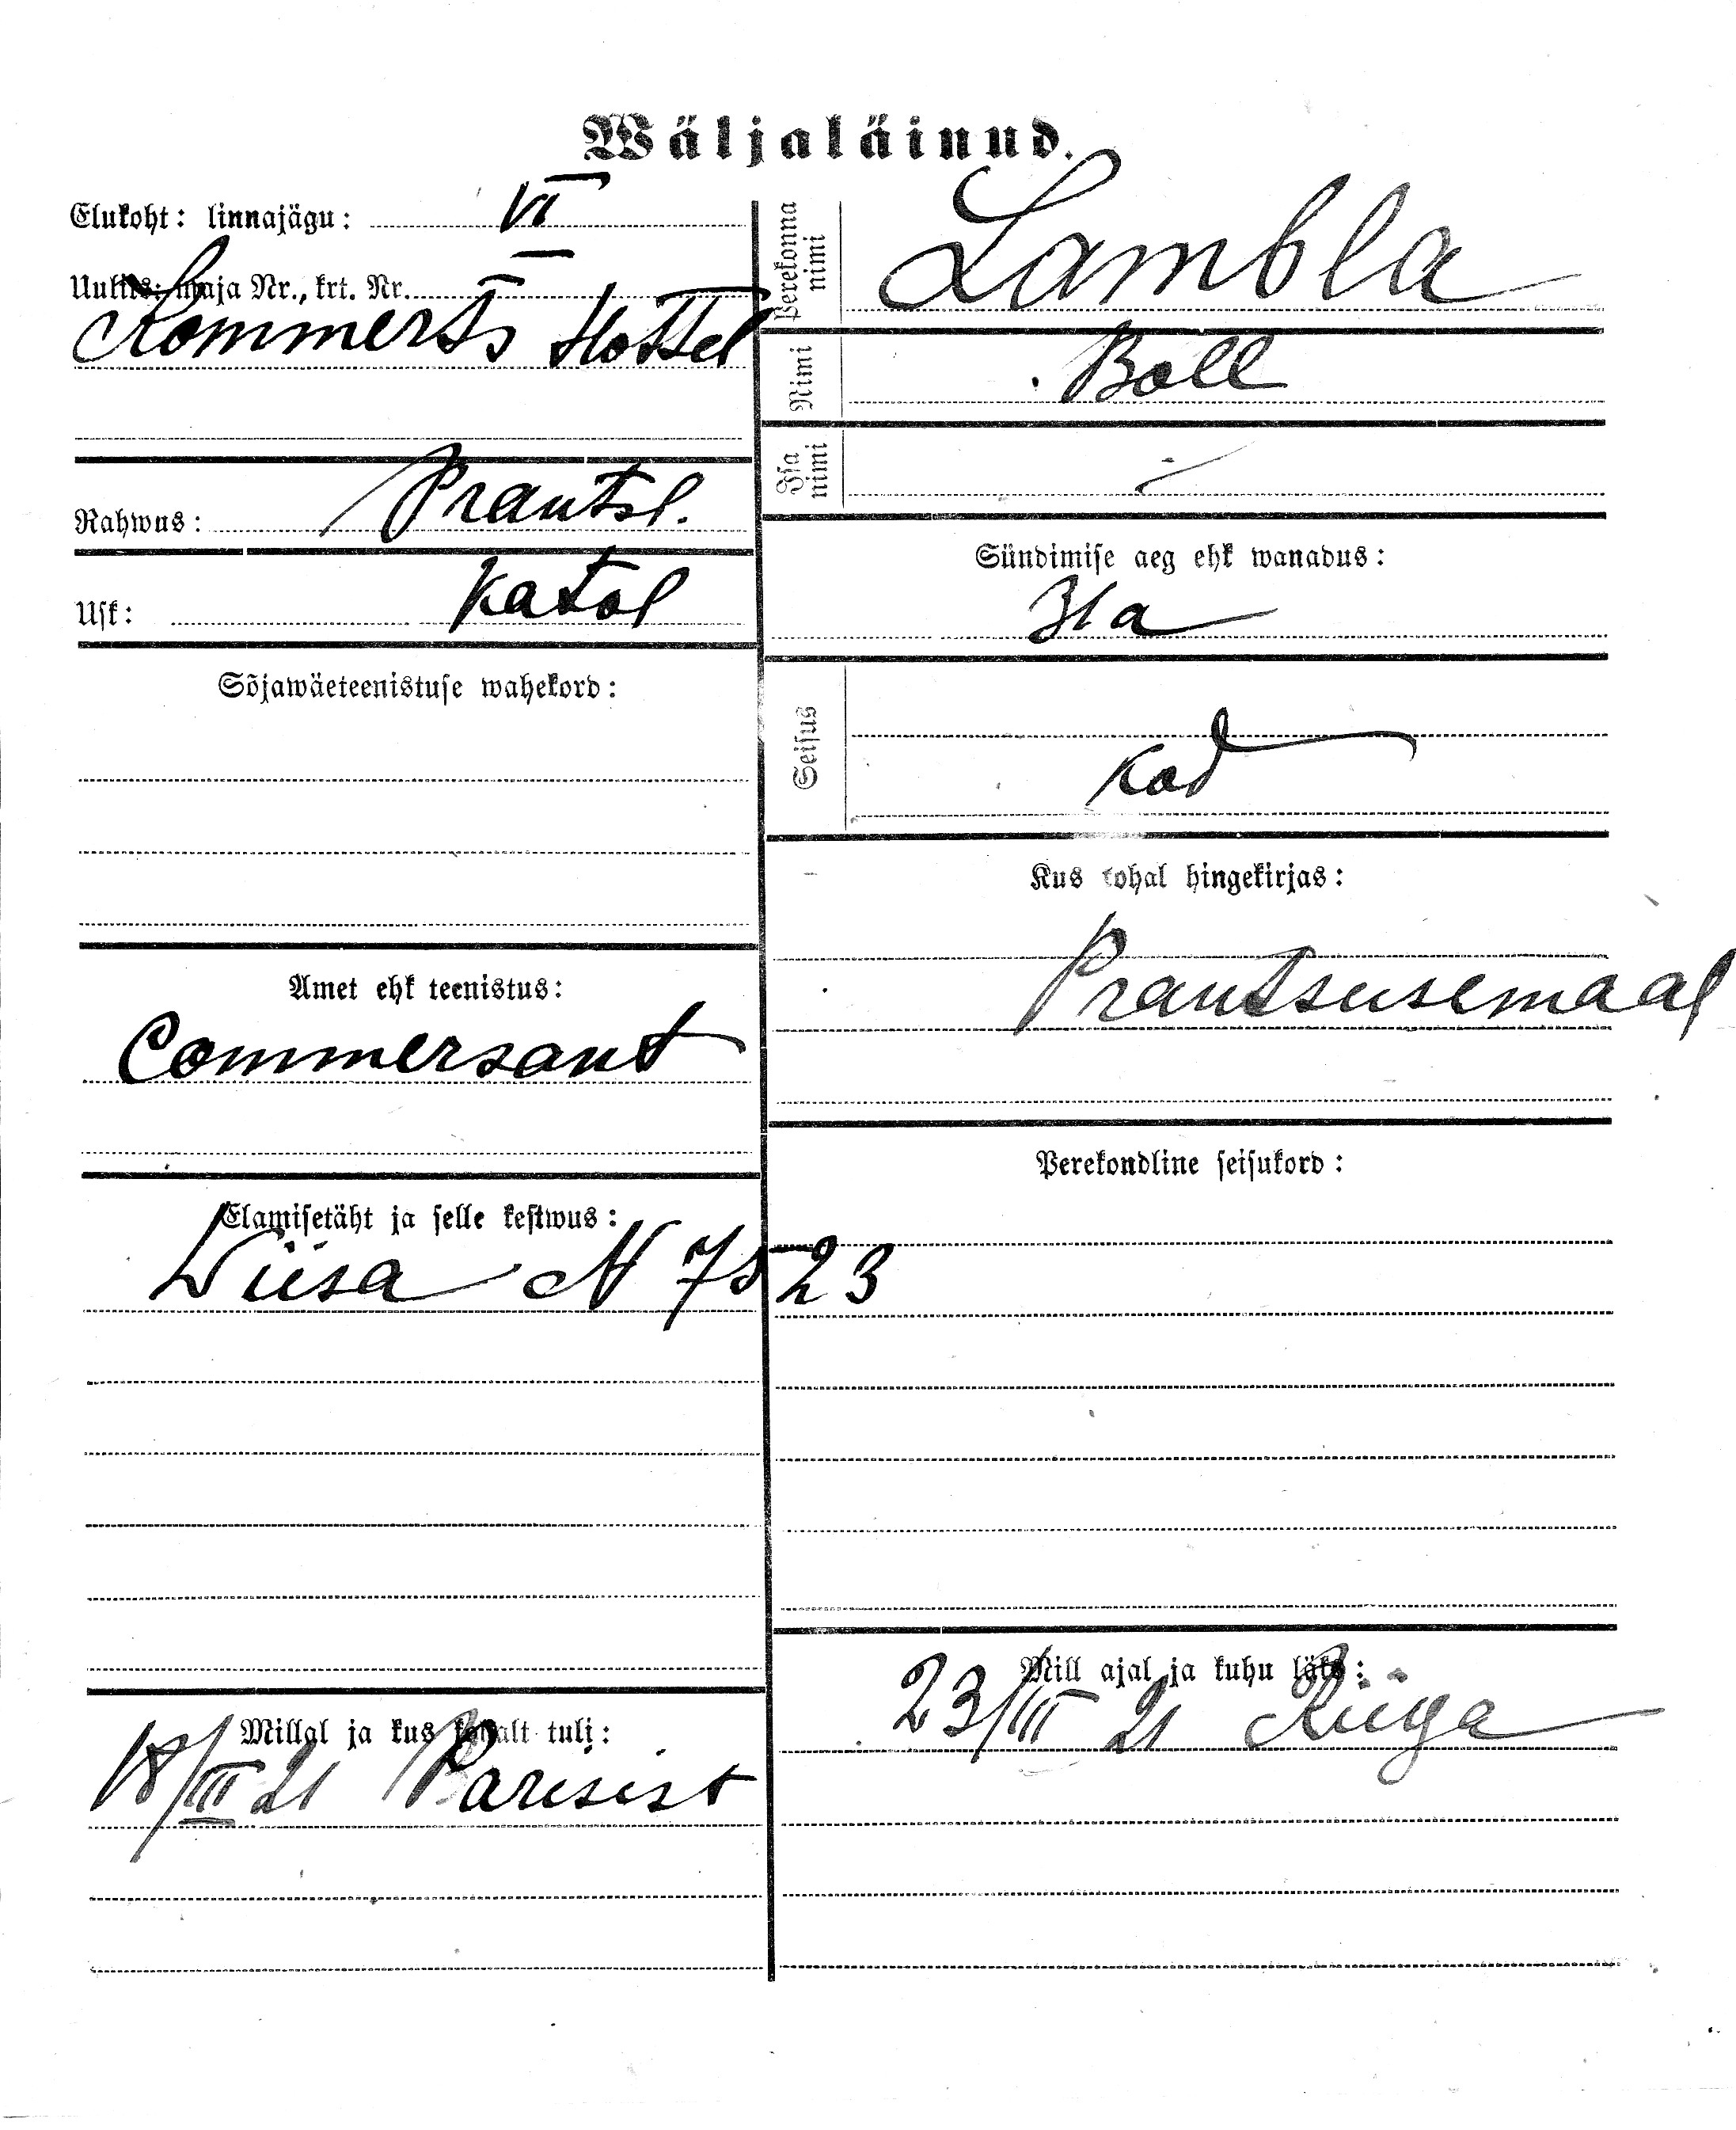 Wäljaläinud.
Elukoht: linnajägu: VI
Uulits: maja Nr., krt. Nr.
Kommerts Hottel
Rahwus: Prantsl.
Usk: Katol
Sõjawäeteenistuse wahekord:
Amet ehk teenistus:
Commersant
Elamisetäht ja selle kestwus:
Wiisa N 7523
Millal ja kus kohalt tuli:
18/III 21 Parisist
Perekonna nimi Lambla
Nimi Boll
Isa nimi -
Sündimise aeg ehk wanadus:
31 a
Seisus
kod
Kus kohal hingekirjas:
Prantsusemaal
Perekondline seisukord:
Mill ajal ja kuhu läks:
23/III 21 Riiga